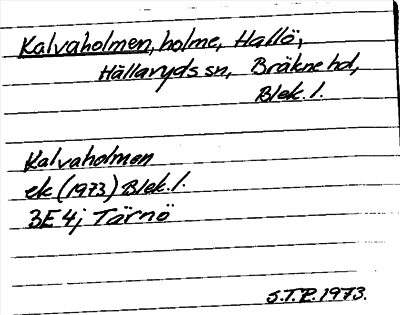 Kalvaholmen, holme, Hallö,
Hällaryds sn, Bräkne hd,
Blek. l.
Kalvaholmen
ek (1973) Blek. l.
3E 4j Tärnö
S.T.P. 1973.